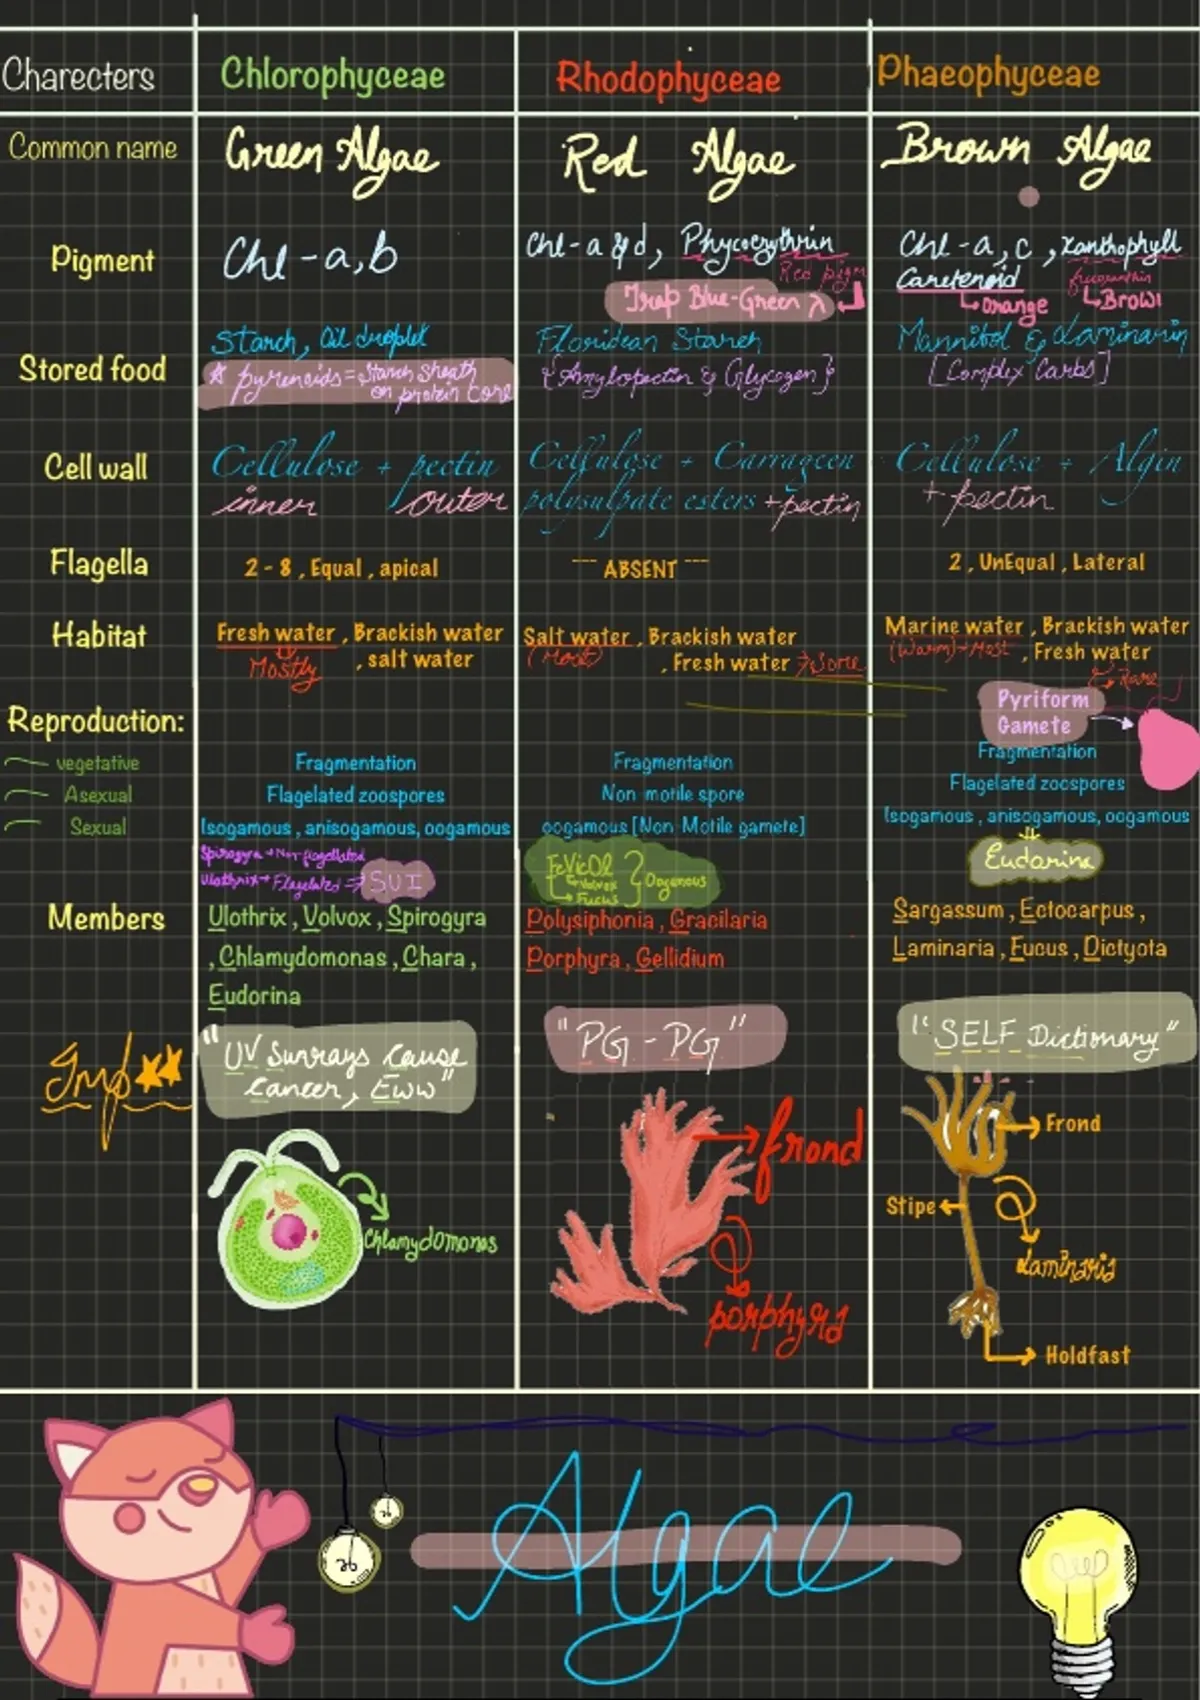 Charecters
Chlorophyceae
Rhodophyceae
Phaeophyceae
Common name
Green Algae
Red Algae
Brown Algae
Pigment
Chl - a, b
Chl - a & d, Phycoerythrin
Red pigm
Trap Blue-Green λ
Chl - a, c , xanthophyll
Caretenoid
fucoxanthin
Orange
Brow
Stored food
Starch, Oil droplet
* pyrenoids = Starch sheath
on protein Core
Floridean Starch
{Amylopectin & Glycogen}
Mannitol & Laminarin
[Complex Carbs]
Cell wall
Cellulose + pectin
inner outer
Cellulose + Carrageen
polysulpate esters + pectin
Cellulose + Algin
+ pectin
Flagella
2 - 8 , Equal , apical
--- ABSENT ---
2 , UnEqual , Lateral
Habitat
Fresh water , Brackish water
, salt water
Mostly
Salt water , Brackish water
(Most)
, Fresh water → Some
Marine water , Brackish water
(Warm) → Most
, Fresh water
→ Rare
Pyriform
Gamete
Reproduction:
vegetative
Fragmentation
Fragmentation
Fragmentation
Asexual
Flagelated zoospores
Non-motile spore
Flagelated zoospores
Sexual
Isogamous , anisogamous, oogamous
oogamous [Non-Motile gamete]
Isogamous , anisogamous, oogamous
Spirogyra → Non-flagellated
Ulothrix → Flagelated ⇒ SUI
FeVicOl
Volvox
Fucus
} Oogenous
Eudorina
Members
Ulothrix , Volvox , Spirogyra
, Chlamydomonas , Chara ,
Eudorina
Polysiphonia , Gracilaria
Porphyra , Gellidium
Sargassum , Ectocarpus ,
Laminaria , Fucus , Dictyota
Imp
"UV Sunrays Cause
Cancer, Eww"
"PG - PG"
"SELF Dictionary"
Chlamydomonas
frond
porphyra
Frond
Stipe
Laminaria
Holdfast
Algae